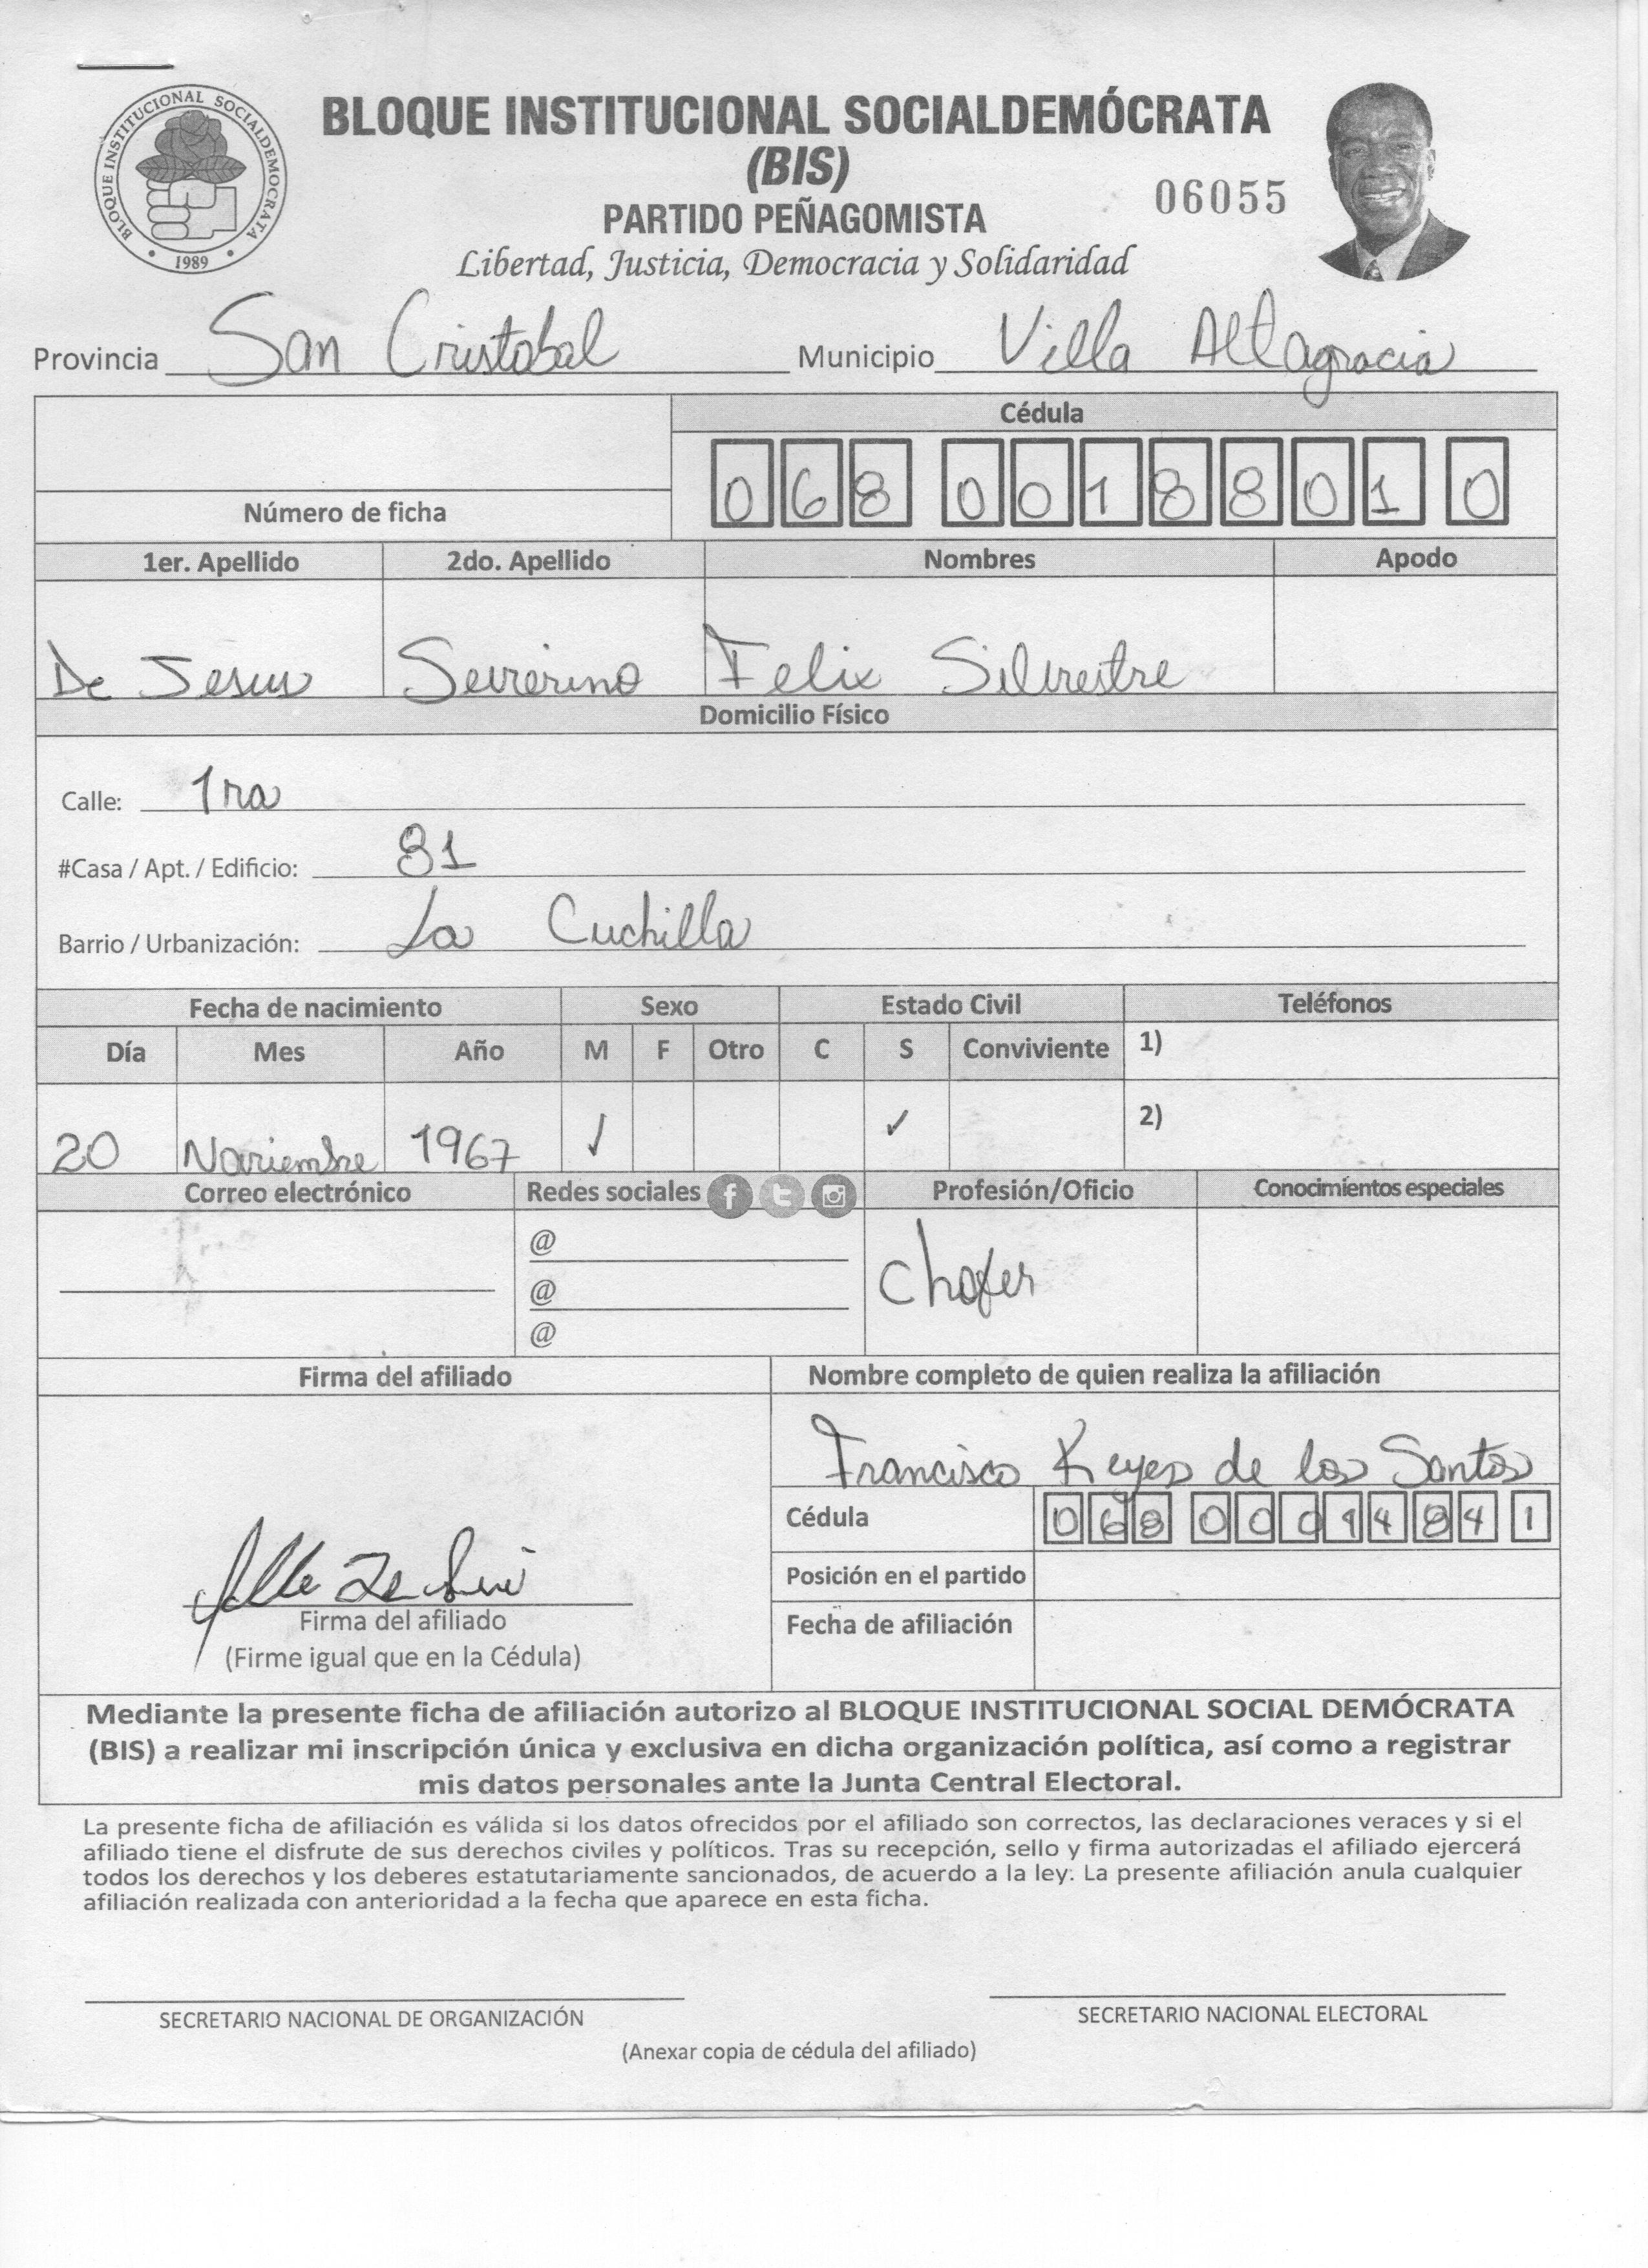 BLOQUE INSTITUCIONAL SOCIALDEMOCRATA
1989
BLOQUE INSTITUCIONAL SOCIALDEMÓCRATA
(BIS)
PARTIDO PEÑAGOMISTA
06055
Libertad, Justicia, Democracia y Solidaridad
Provincia San Cristobal Municipio Villa Altagracia
Cédula
068 0018801 0
Número de ficha
1er. Apellido 2do. Apellido Nombres Apodo
De Jesus Severino Felix Silvestre
Domicilio Físico
Calle: 1ra
#Casa / Apt. / Edificio: 81
Barrio / Urbanización: La Cuchilla
Fecha de nacimiento Sexo Estado Civil Teléfonos
Día Mes Año M F Otro C S Conviviente 1)
20 Noviembre 1967 ✓ ✓ 2)
Correo electrónico Redes sociales Profesión/Oficio Conocimientos especiales
@
@
@
Chofer
Firma del afiliado Nombre completo de quien realiza la afiliación
Francisco Reyes de los Santos
Cédula 068 0001484 1
Posición en el partido
Fecha de afiliación
Firma del afiliado
(Firme igual que en la Cédula)
Mediante la presente ficha de afiliación autorizo al BLOQUE INSTITUCIONAL SOCIAL DEMÓCRATA
(BIS) a realizar mi inscripción única y exclusiva en dicha organización política, así como a registrar
mis datos personales ante la Junta Central Electoral.
La presente ficha de afiliación es válida si los datos ofrecidos por el afiliado son correctos, las declaraciones veraces y si el
afiliado tiene el disfrute de sus derechos civiles y políticos. Tras su recepción, sello y firma autorizadas el afiliado ejercerá
todos los derechos y los deberes estatutariamente sancionados, de acuerdo a la ley. La presente afiliación anula cualquier
afiliación realizada con anterioridad a la fecha que aparece en esta ficha.
SECRETARIO NACIONAL DE ORGANIZACIÓN SECRETARIO NACIONAL ELECTORAL
(Anexar copia de cédula del afiliado)